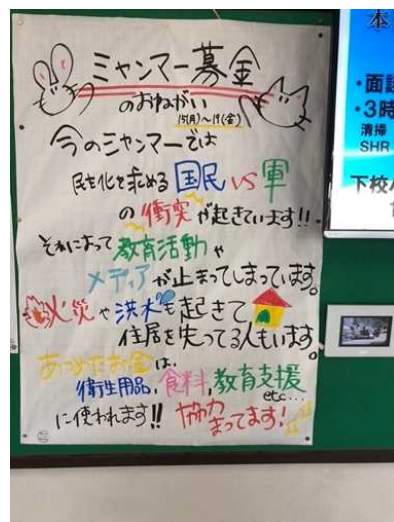 ミャンマー募金
のおねがい
15(月)~19(金)
今のミャンマーでは
民主化を求める国民VS軍
の衝突が起きています!!
それによって教育活動や
メディアが止まってしまっています。
火災や洪水も起きて
住居を失ってる人もいます。
あつめたお金は、
衛生用品、食料、教育支援
etc...
に使われます!! 協力
まってます!
本
・面談
・3時
清掃
SHR
下校